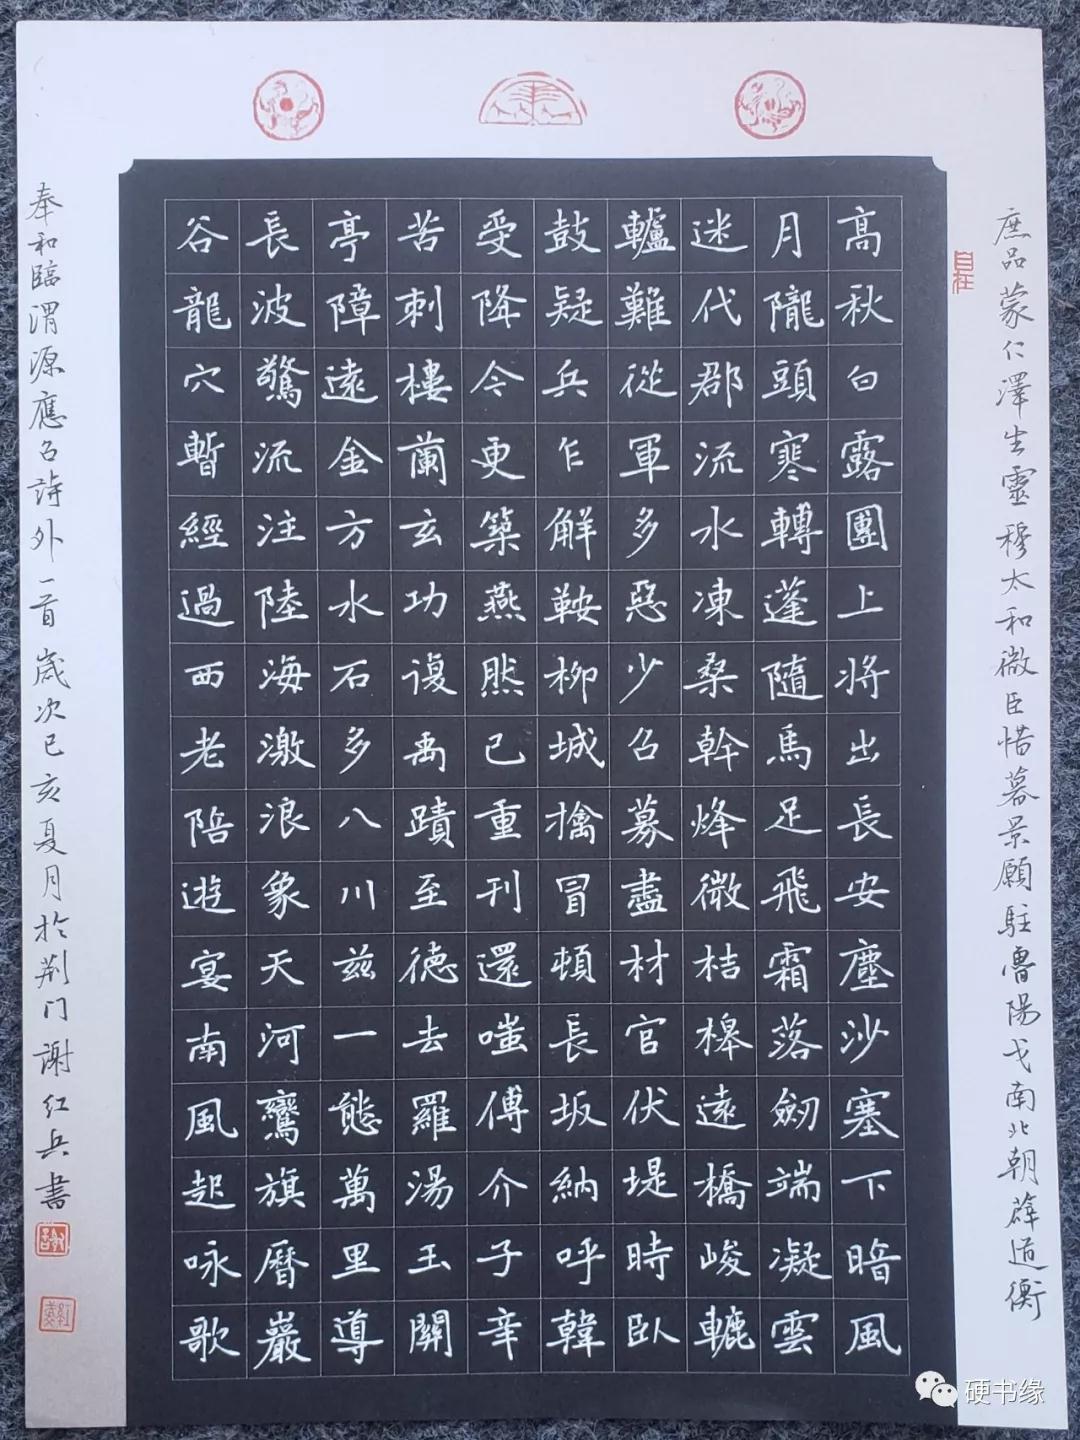 高秋白露團上將出長安塵沙塞下暗風
月隴頭寒轉蓬隨馬足飛霜落劒端凝雲
迷代郡流水凍桑幹烽微桔槔遠橋峻轆
轤難從軍多惡少召募盡材官伏堤時臥
鼓疑兵乍解鞍柳城擒冒頓長坂納呼韓
受降今更築燕然已重刊還嗤傅介子辛
苦刺樓蘭玄功復禹蹟至德去羅湯玉關
亭障遠金方水石多八川兹一態萬里導
長波驚流注陸海激浪象天河鸞旗曆巖
谷龍穴暫經過西老陪遊宴南風起咏歌
庶品蒙仁澤生靈穆太和微臣惜暮景願駐魯陽戈南北朝薛道衡
奉和臨渭源應召詩外一首歲次已亥夏月於荆门謝红兵書
自在
硬书缘